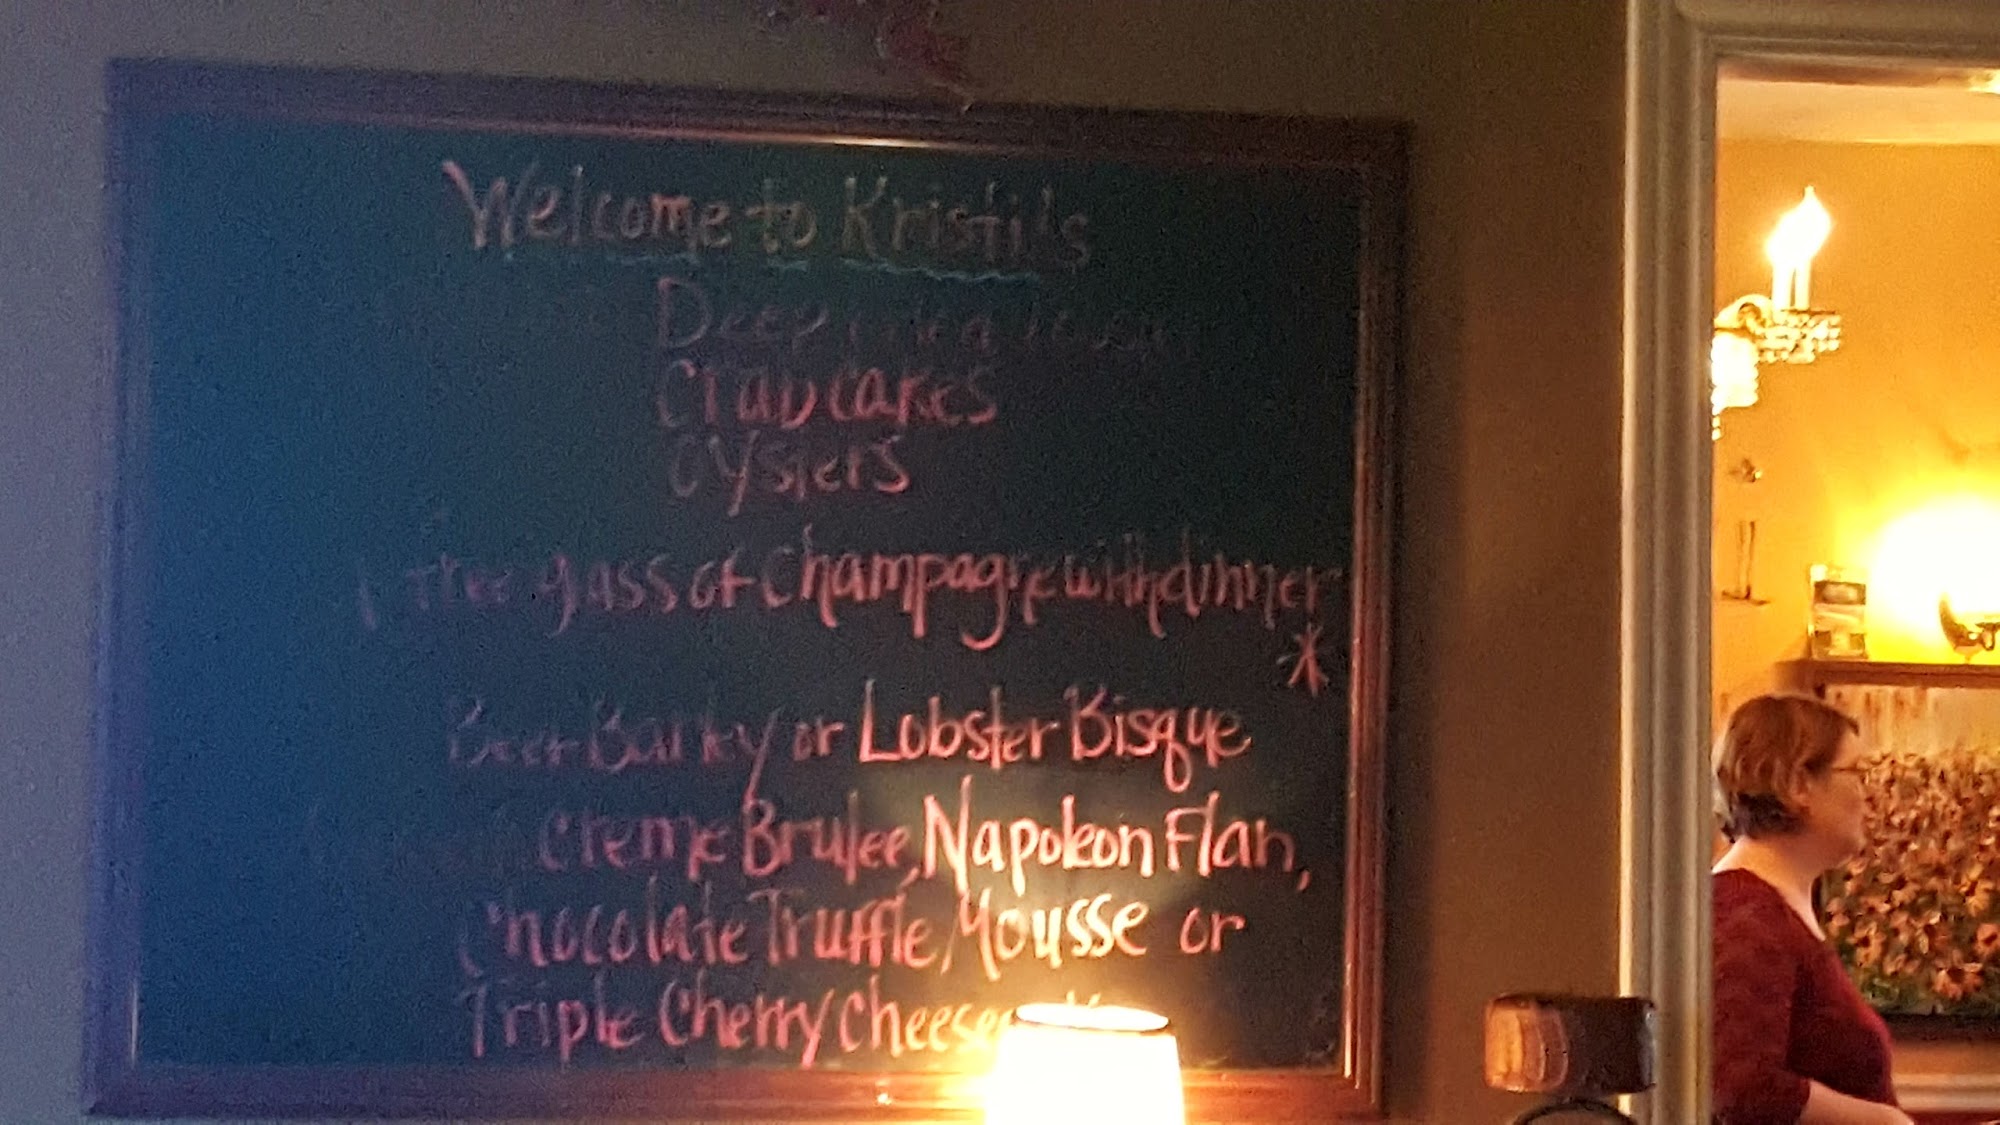 Welcome to Kristi's
Deep
Crabcakes
Oysters
glass of Champagne with dinner
*
Beer Barley or Lobster Bisque
Creme Brulee, Napoleon Flan,
Chocolate Truffle, Mousse or
Triple Cherry